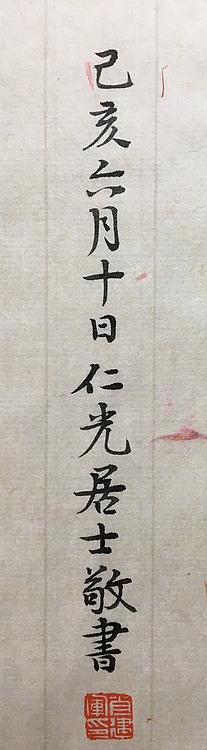 己亥六月十日仁光居士敬書